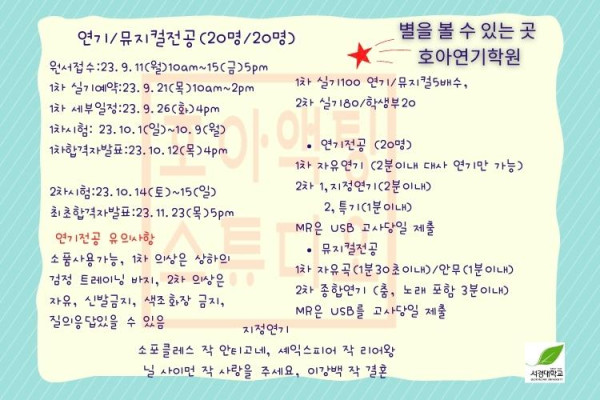 연기/뮤지컬전공(20명/20명)
별을 볼 수 있는 곳
호아연기학원
원서접수:23. 9. 11(월)10am~15(금)5pm
1차 실기예약:23. 9. 21(목)10am~2pm
1차 세부일정:23. 9. 26(화)4pm
1차시험: 23. 10. 1(일)~10. 9(월)
1차합격자발표:23. 10. 12(목)4pm
2차시험:23. 10. 14(토)~15(일)
최초합격자발표:23. 11. 23(목)5pm
연기전공 유의사항
소품사용가능, 1차 의상은 상하의
검정 트레이닝 바지, 2차 의상은
자유, 신발금지, 색조화장 금지,
질의응답있을 수 있음
1차 실기100 연기/뮤지컬5배수,
2차 실기80/학생부20
• 연기전공 (20명)
1차 자유연기 (2분이내 대사 연기만 가능)
2차 1,지정연기(2분이내)
2,특기(1분이내)
MR은 USB 고사당일 제출
• 뮤지컬전공
1차 자유곡(1분30초이내)/안무(1분이내)
2차 종합연기 (춤, 노래 포함 3분이내)
MR은 USB를 고사당일 제출
지정연기
소포클레스 작 안티고네, 셰익스피어 작 리어왕
닐 사이먼 작 사랑을 주세요, 이강백 작 결혼
호아액팅
스튜디오
서경대학교